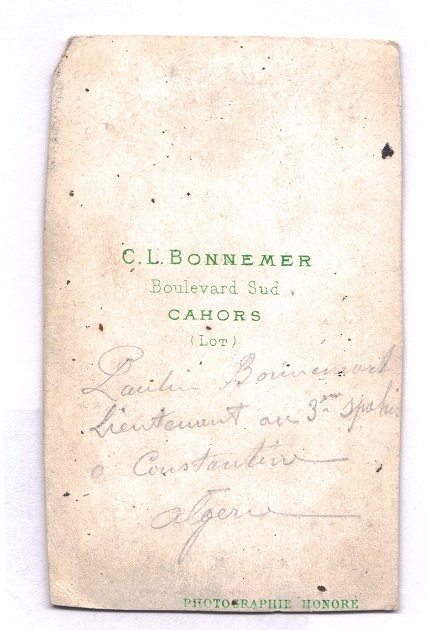 C. L. BONNEMER
Boulevard Sud
CAHORS
(LOT)
Paulin Bonnemort
Lieutenant au 3em spahis
a Constantine
algerie
PHOTOGRAPHIE HONORE